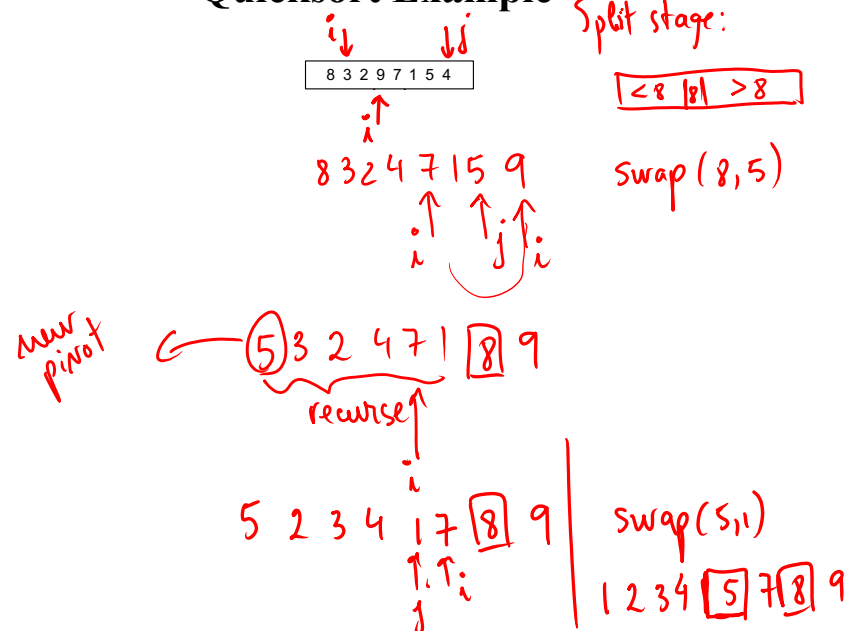 Quicksort Example
Split stage:
i j
8 3 2 9 7 1 5 4
<8 |8| >8
i
8 3 2 4 7 1 5 9
swap (8,5)
i j i
new pivot
5 3 2 4 7 1 8 9
recurse
i
5 2 3 4 1 7 8 9
swap(5,1)
j i
1 2 3 4 5 7 8 9